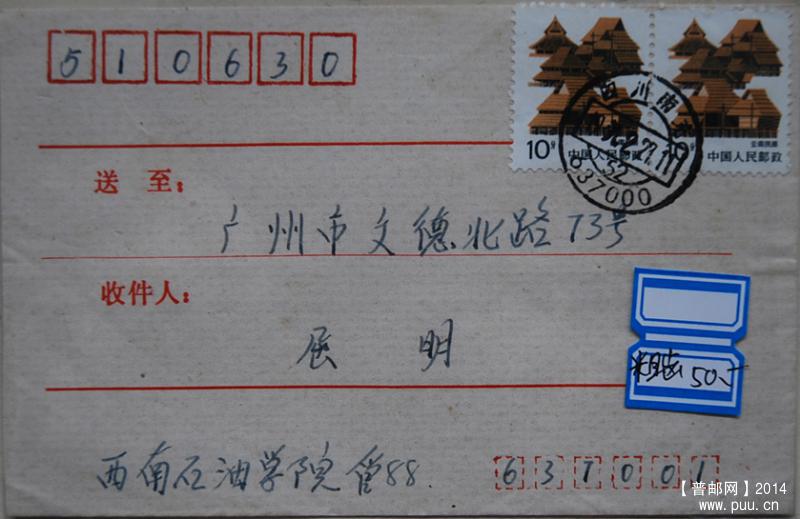 510630
10分
中国人民邮政
云南民居
中国人民邮政
四川南充
52
637000
送 至：
广州市文德北路73号
收件人：
展 明
粗齿50
西南石油学院管88
637001
【普邮网】2014
www.puu.cn